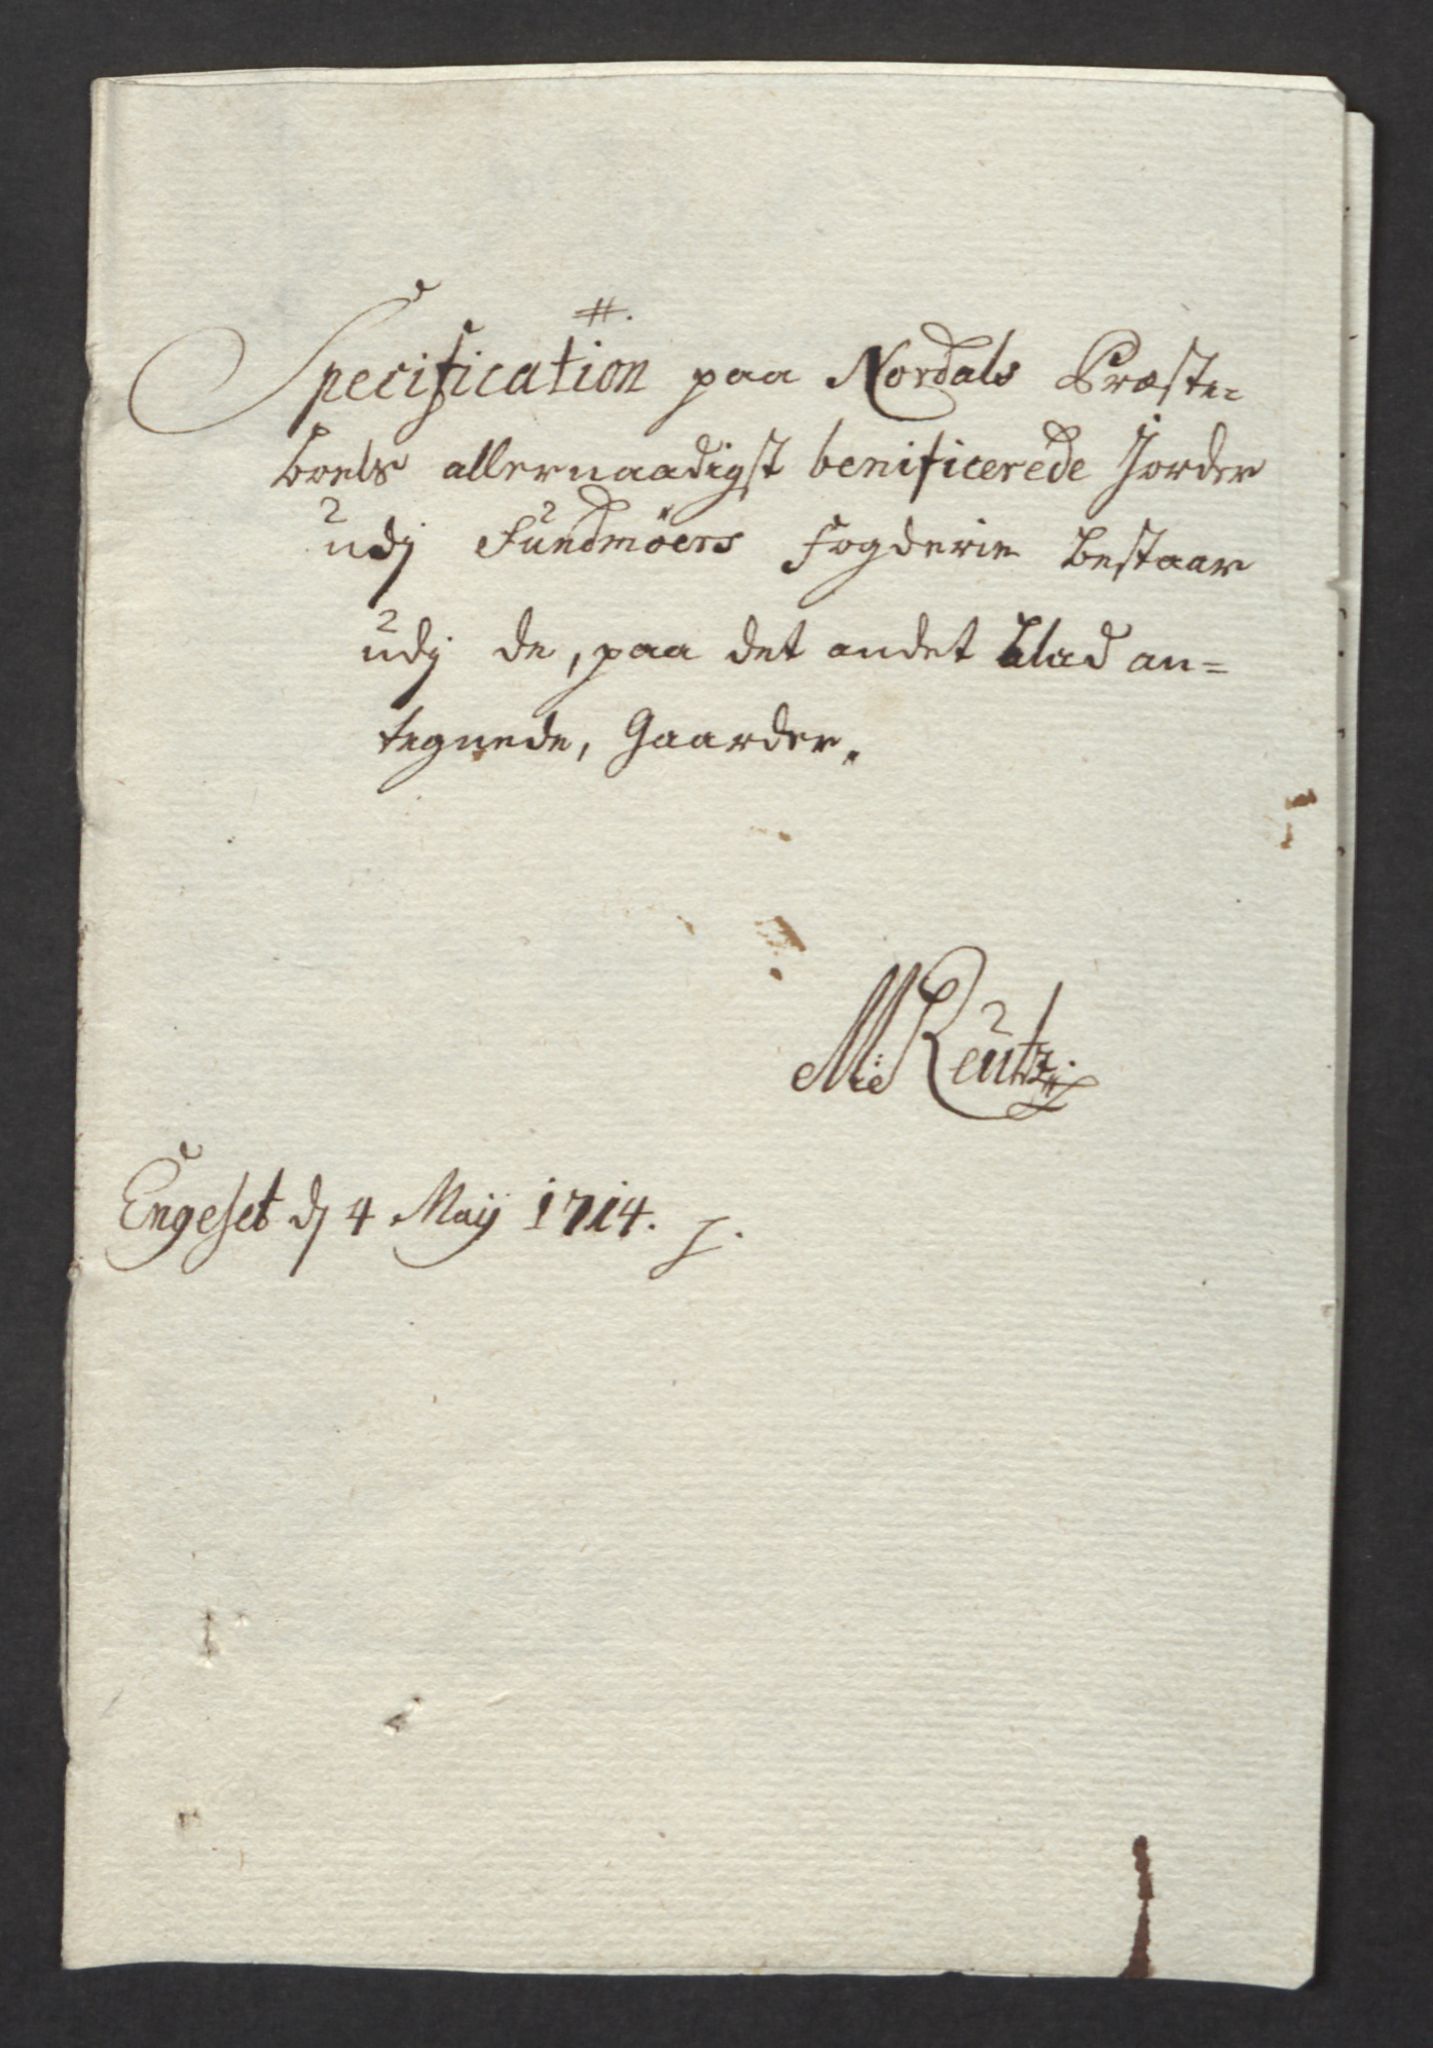 #.
Specification paa Nordals Præste=
boels allernaadigst benificerede Jorder
udj Sundmöers Fogderie bestaar
udj de, paa det andet blad an=
tegnede, Gaarder.
Reutz
Engeset dj 4 Maij 1714.